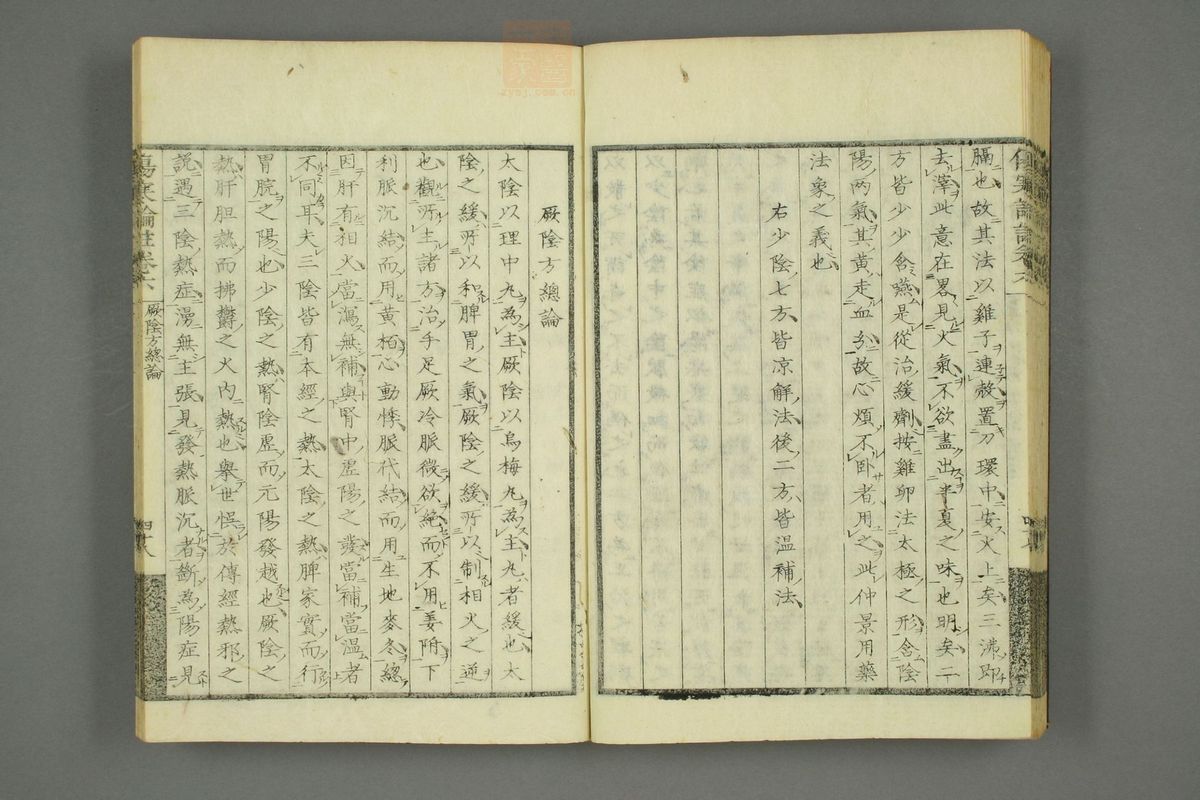 膈也故其法以雞子連殼置刀環中安火上矣三沸即
去滓此意在畧見火氣不欲盡出半夏之味也明矣二
方皆少少含嚥是從治緩劑按雞卵法太極之形含陰
陽兩氣其黄走血分故心煩不卧者用之此仲景用藥
法象之義也
右少陰七方皆凉解法後二方皆温補法
厥陰方總論
太陰以理中丸為主厥陰以烏梅丸為主丸者緩也太
陰之緩所以和脾胃之氣厥陰之緩所以制相火之逆
也觀所主諸方治手足厥冷脈微欲絶而不用姜附下
利脈沉結而用黄栢心動悸脈代結而用生地麥冬總
因肝有相火當瀉無補與腎中虛陽之發當補當温者
不同耳夫三陰皆有本經之熱太陰之熱脾家實而行
胃脘之陽也少陰之熱腎陰虛而元陽發越也厥陰之
熱肝胆熱而拂欝之火内熱也舉世悮於傳經熱邪之
說遇三陰熱症漫無主張見發熱脈沉者斷為陽症見
傷寒論註卷六
厥陰方總論
四十八